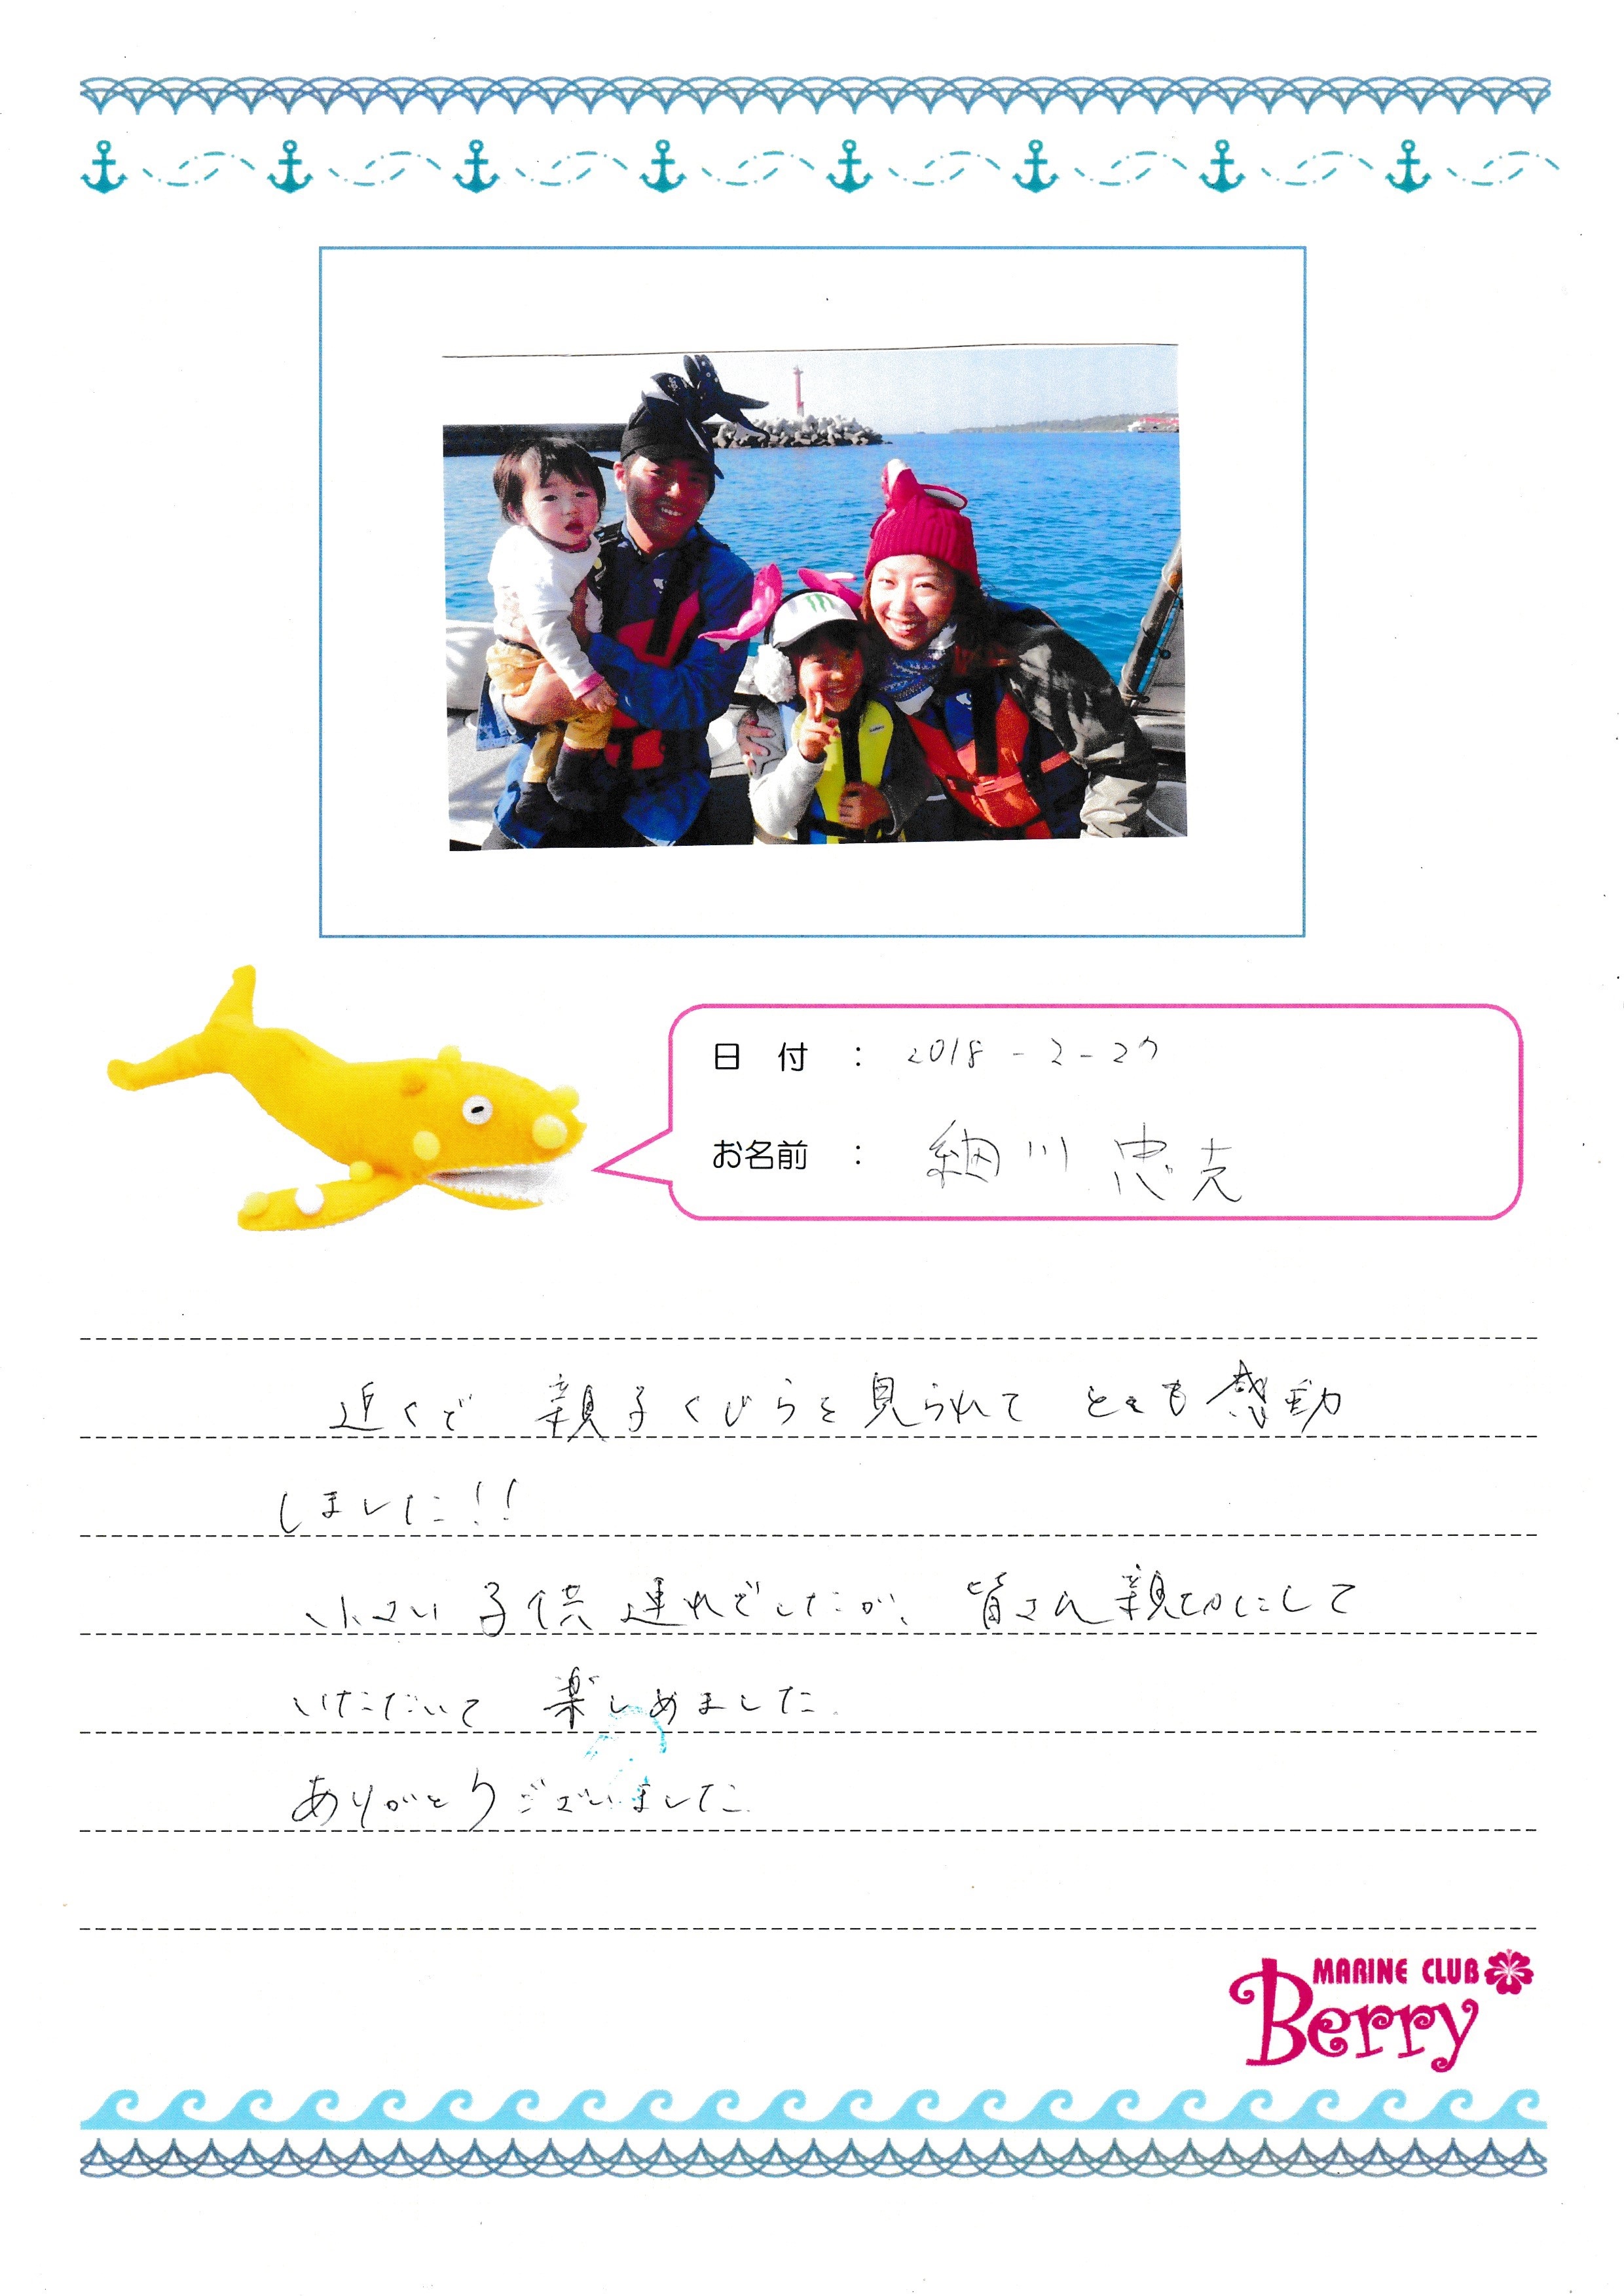 日 付 : 2018-2-27
お名前 : 細川 忠克
近くで 親子くじらを見られて とても感動
しました!!
小さい子供連れでしたが、皆さん親切にして
いただいて 楽しめました。
ありがとうございました
MARINE CLUB
Berry